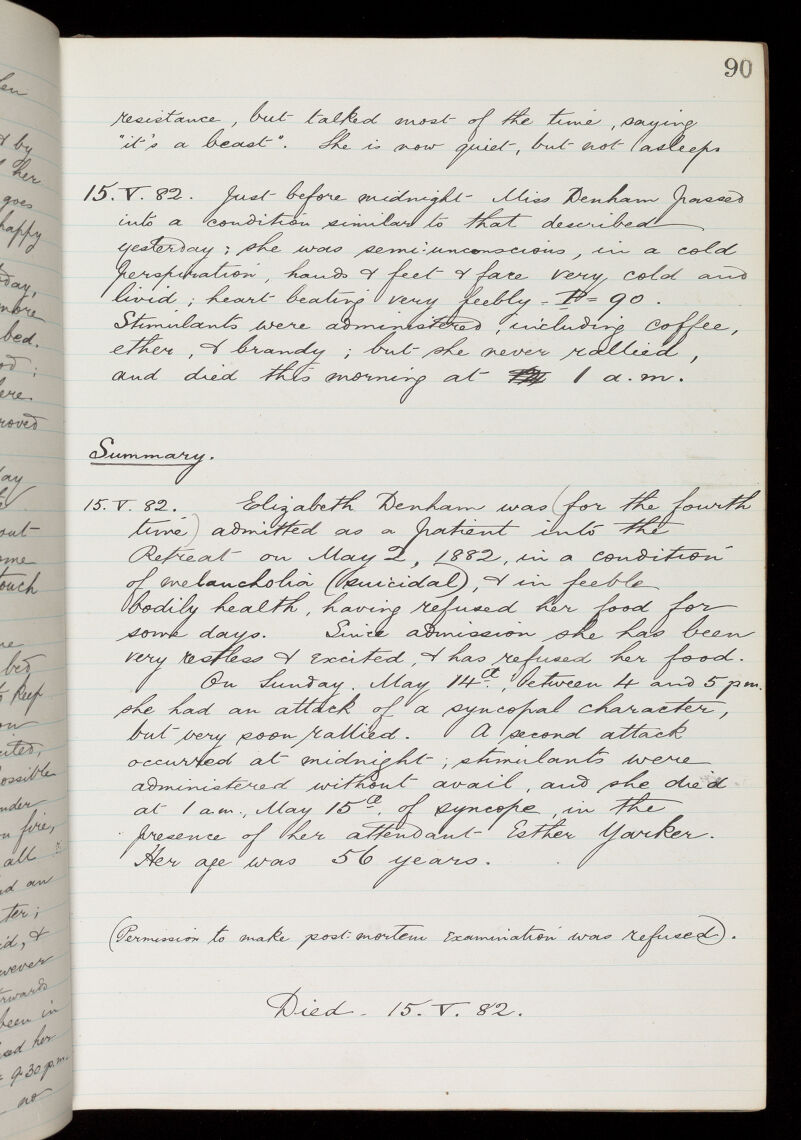 90
resistance, but talked most of the time, saying
"it's a beast". She is now quiet, but not asleep.
15. V. 82. Just before midnight Miss Denham passed
into a condition similar to that described
yesterday; she was semi-unconscious, in a cold
perspiration, hands & feet & face very cold and
livid; heart beating very feebly - P = 90.
Stimulants were administered, including coffee,
ether, & brandy; but she never rallied,
and died this morning at 1 a.m.
Summary.
15. V. 82. Elizabeth Denham was (for the fourth
time) admitted as a patient into the
Retreat on May 2, 1882, in a condition
of melancholia (suicidal), & in feeble
bodily health, having refused her food for
some days. Since admission she has been
very restless & excited, & has refused her food.
On Sunday, May 14th, between 4 and 5 p.m.
she had an attack of a syncopal character,
but very soon rallied. A second attack
occurred at midnight; stimulants were
administered without avail, and she died
at 1 a.m., May 15th, of syncope, in the
presence of her attendant Esther Yarker.
Her age was 56 years.
(Permission to make post-mortem examination was refused).
Died - 15. V. 82.
& by
her
goes
happy
more
bed.
out
touch
bed
on
under
fire,
all
and an
&
been in
her
9.30 p.m.
no